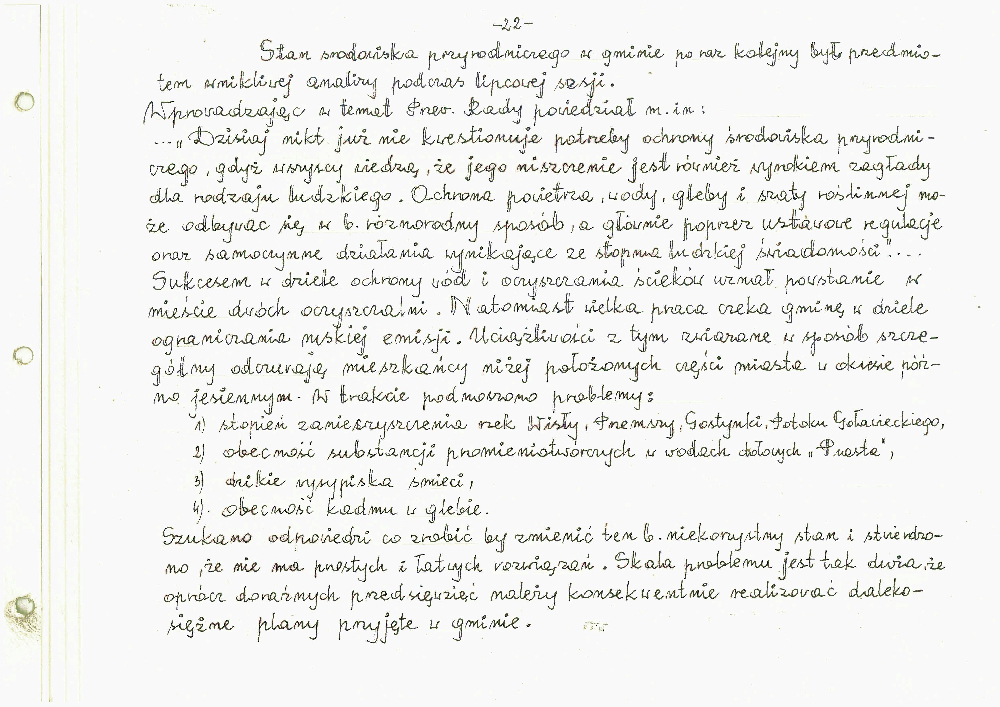 -22-
Stan środowiska przyrodniczego w gminie po raz kolejny był przedmio-
tem wnikliwej analizy podczas lipcowej sesji.
Wprowadzając w temat Przew. Rady powiedział m.in:
..."Dzisiaj nikt już nie kwestionuje potrzeby ochrony środowiska przyrodni-
czego, gdyż wszyscy wiedzą, że jego niszczenie jest również wyrokiem zagłady
dla rodzaju ludzkiego. Ochrona powietrza, wody, gleby i szaty roślinnej mo-
że odbywać się w b. różnorodny sposób, a głównie poprzez ustawowe regulacje
oraz samoczynne działania wynikające ze stopnia ludzkiej świadomości"....
Sukcesem w dziele ochrony wód i oczyszczania ścieków uznał powstanie w
mieście dwóch oczyszczalni. Natomiast wielka praca czeka gminę w dziele
ograniczania niskiej emisji. Uciążliwości z tym związane w sposób szcze-
gólny odczuwają mieszkańcy niżej położonych części miasta w okresie póź-
no jesiennym. W trakcie podnoszono problemy:
1) stopień zanieczyszczenia rzek Wisły, Przemszy, Gostynki, Potoku Goławieckiego,
2) obecność substancji promieniotwórczych w wodach dołowych "Piasta",
3) dzikie wysypiska śmieci,
4) obecność kadmu w glebie.
Szukano odpowiedzi co zrobić by zmienić ten b. niekorzystny stan i stwierdzo-
no, że nie ma prostych i łatwych rozwiązań. Skala problemu jest tak duża, że
oprócz doraźnych przedsięwzięć należy konsekwentnie realizować daleko-
siężne plany przyjęte w gminie.